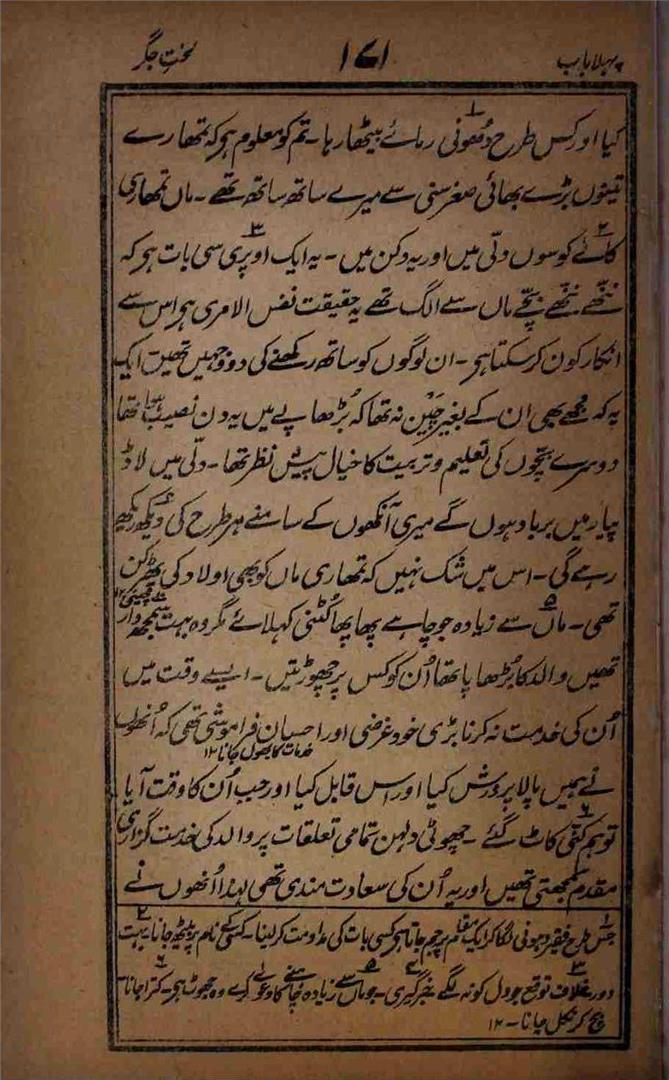 پہلا باب ۱۷۱ لختِ جگر
کیا اور کس طرح دُھونی رمائے بیٹھا رہا۔ تم کو معلوم ہو کہ تمھارے
تینوں بڑے بھائی صغر سنی سے میرے ساتھ ساتھ تھے۔ ماں تمھاری
کالے کوسوں دلّی میں اور یہ دکن میں۔ یہ ایک اوپری سی بات ہو کہ
ننھّے ننھّے بچّے ماں سے الگ تھے یہ حقیقت نفس الامری ہو اس سے
انکار کون کر سکتا ہو۔ ان لوگوں کو ساتھ رکھنے کی دو وجہیں تھیں ایک
یہ کہ مجھے بھی ان کے بغیر چَین نہ تھا کہ بُڑھاپے میں یہ دن نصیب ہوا تھا
دوسرے بچّوں کی تعلیم و تربیت کا خیال پیش نظر تھا۔ دلّی میں لاڈ
پیار میں برباد ہوں گے میری آنکھوں کے سامنے ہر طرح کی دیکھ ریکھ
رہے گی۔ اس میں شک نہیں کہ تمھاری ماں کو بھی اولاد کی پھڑکن
تھی۔ ماں سے زیادہ جو چاہے پھاپھا کُٹنی کہلائے مگر وہ بہت سمجھ دار
تھیں والد کا بُڑھاپا تھا اُن کو کس پر چھوڑتیں۔ ایسے وقت میں
اُن کی خدمت نہ کرنا بڑی خود غرضی اور احسان فراموشی تھی کہ اُنھوں
خدمات کا بھول جانا ۱۲
نے ہمیں پالا پرورش کیا اور اس قابل کیا اور جب اُن کا وقت آیا
تو ہم کنّی کاٹ گئے۔ چھوٹی دلہن تمامی تعلقات پر والد کی خدمت گزاری
مقدم سمجھتی تھیں اور یہ اُن کی سعادت مندی تھی لہٰذا اُنھوں نے
۱ جس طرح فقیر دہونی لگا کر ایک مقام پر جم جاتا ہو کسی بات کی مداومت کر لینا۔ کسی کے نام پر بیٹھ جانا ۲ بہت
دور ۳ خلاف توقع جو دل کو نہ لگے ۴ خبرگیری۔ ۵ جو ماں سے زیادہ چاہنے کا دعوے کرے وہ جھوٹا ہو۔ ۶ کترا جانا
بچ کر نکل جانا۔ ۱۲